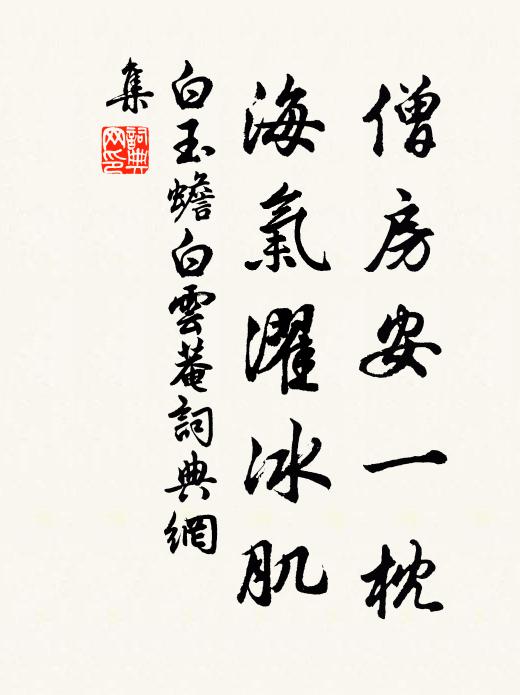 僧房安一枕
海氣濯冰肌
白玉蟾白雲菴詞典網
集
詞典網印